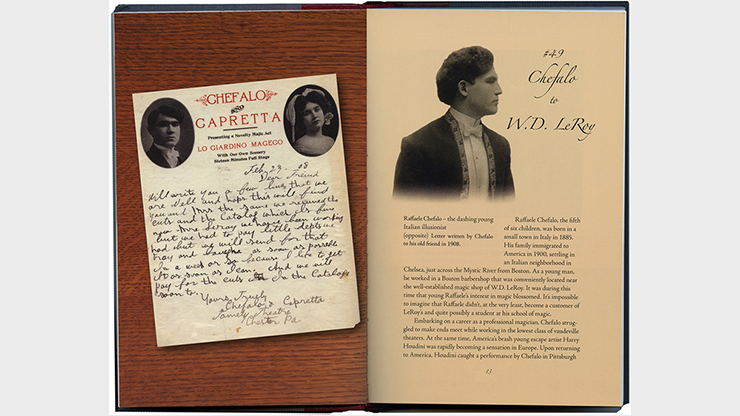 CHEFALO
AND
CAPRETTA
Presenting a Novelty Magic Act
LO GIARDINO MAGEGO
With Our Own Scenery
Sixteen Minutes Full Stage
Feb, 29. 08
Dear Friend
Will write you a few lines that we
are Well and hope this will find
You and Mrs the same we received the
cuts and the Catalog which its fine
now Mrs Leroy we have been working
but we had to pay little depts we
had but we will send for that
tray and as soon as possable
In a week or so because I like to get
it as soon as I can. And we will
pay for the cuts in the Catalog
soon to.
Yours Truly
Chefalo & Capretta
Theatre
Chester Pa.
#49
Chefalo
to
W.D. LeRoy
Raffaele Chefalo – the dashing young
Italian illusionist
(opposite) Letter written by Chefalo
to his old friend in 1908.
Raffaele Chefalo, the fifth
of six children, was born in a
small town in Italy in 1885.
His family immigrated to
America in 1900, settling in
an Italian neighborhood in
Chelsea, just across the Mystic River from Boston. As a young
man, he worked in a Boston barbershop that was conveniently located near
the well-established magic shop of W.D. LeRoy. It was during this
time that young Raffaele's interest in magic blossomed. It's impossible
to imagine that Raffaele didn't, at the very least, become a customer of
LeRoy's and quite possibly a student at his school of magic.
Embarking on a career as a professional magician, Chefalo strug-
gled to make ends meet while working in the lowest class of vaudeville
theaters. At the same time, America's brash young escape artist Harry
Houdini was rapidly becoming a sensation in Europe. Upon returning
to America, Houdini caught a performance by Chefalo in Pittsburgh
13